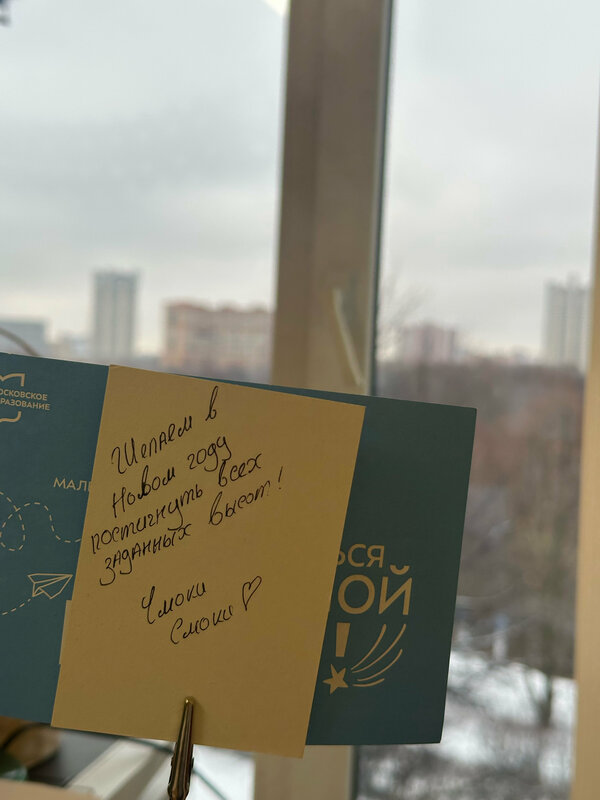 МОСКОВСКОЕ
ОБРАЗОВАНИЕ
Желаем в
Новом году
постигнуть всех
заданных высот!
Чмоки
Смоки
МАЛ
ЬСЯ
ОЙ
!